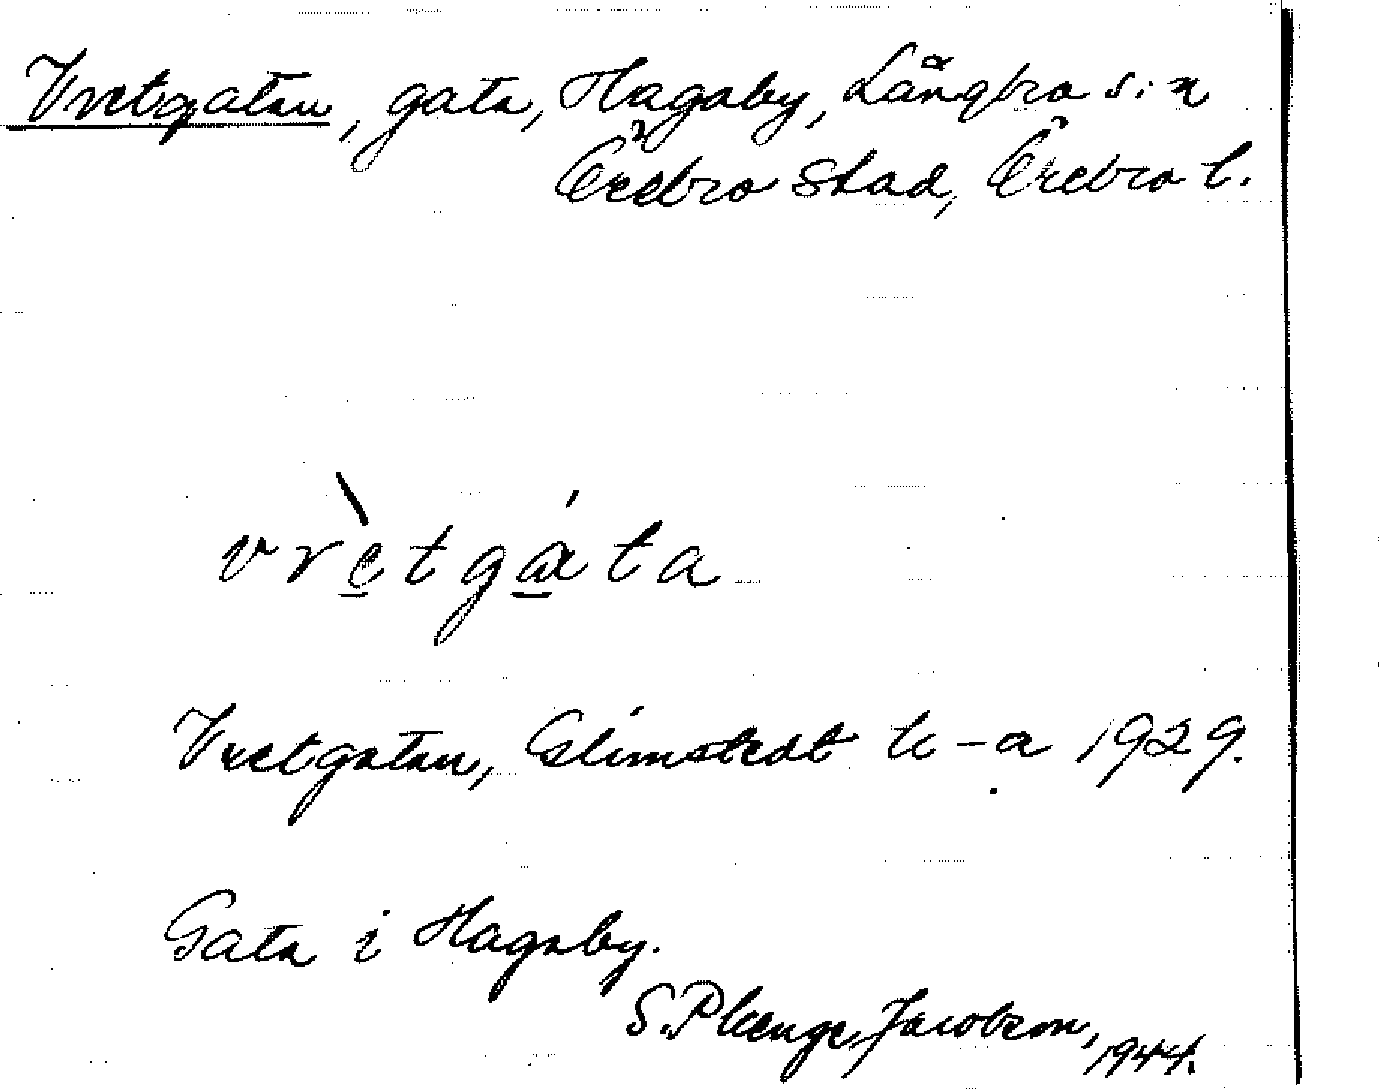 Vretgatan, gata, Hagaby, Längbro s:n
Örebro stad, Örebro l.
vrètgáta
Vretgatan, Glimstedt k-a 1929.
Gata i Hagaby.
S. Plenge Jacobson,
1944.